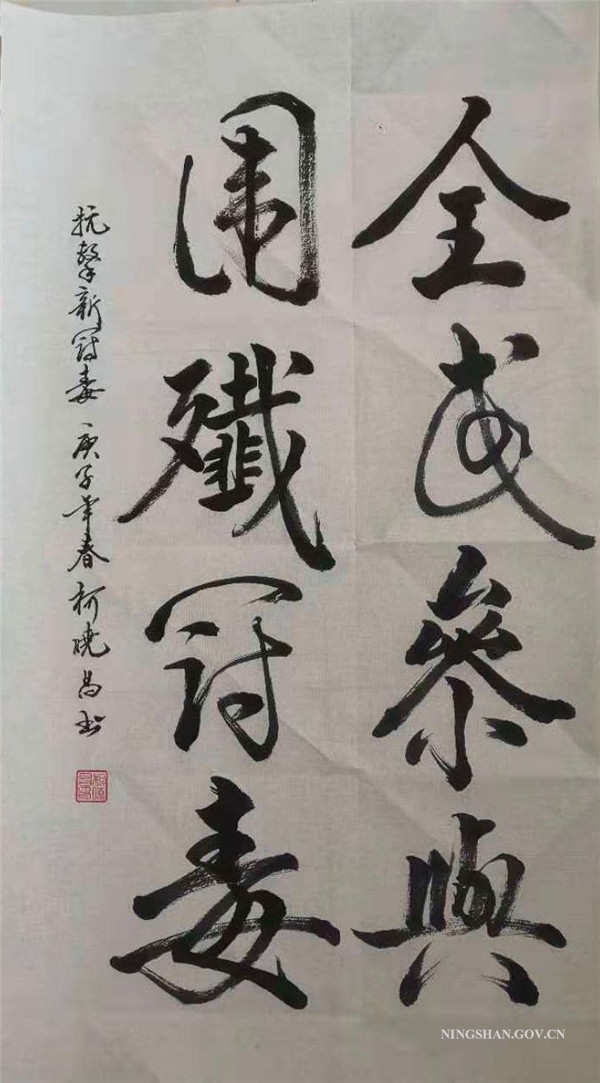 全民參與
围殲冠毒
抗擊新冠毒 庚子年春 柯晓昌书
NINGSHAN.GOV.CN